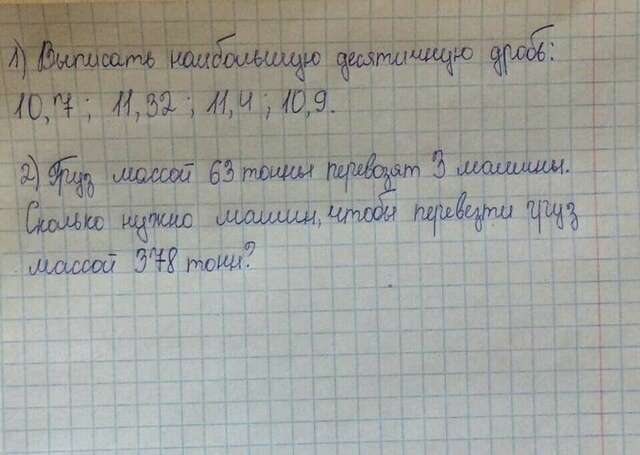 1) Выписать наибольшую десятичную дробь:
10,7; 11,32; 11,4; 10,9.
2) Груз массой 63 тонны перевозят 3 машины.
Сколько нужно машин, чтобы перевезти груз
массой 378 тонн?